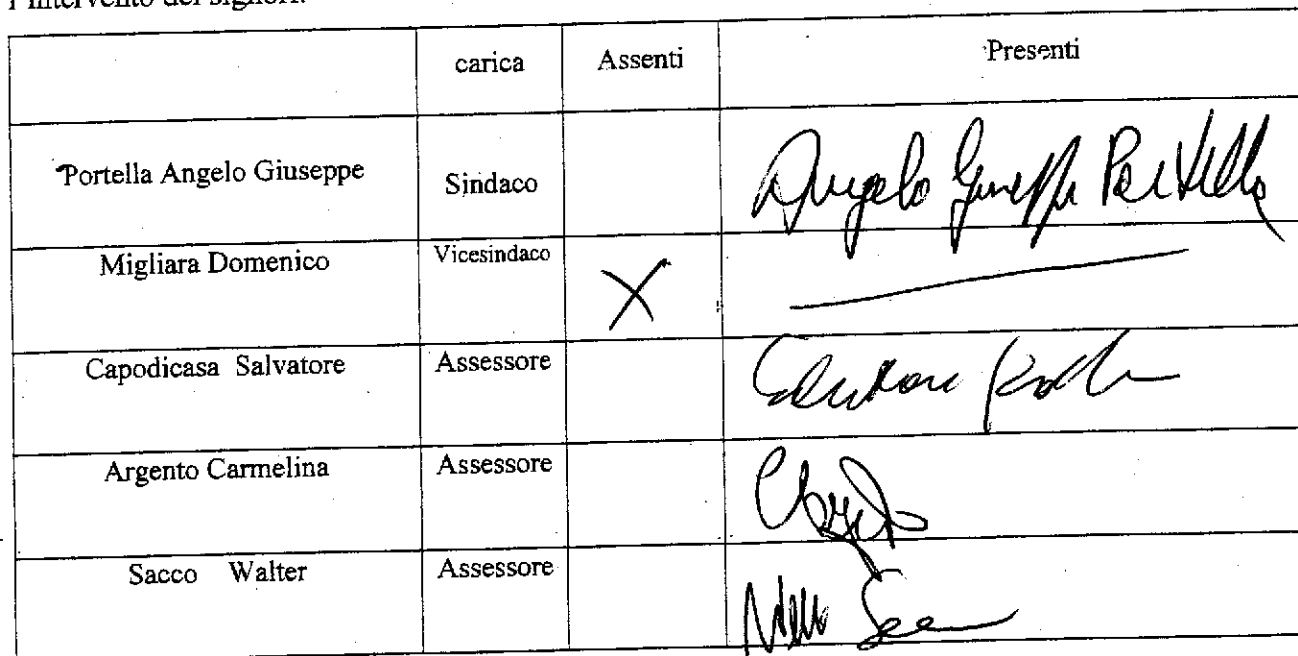 l'intervento dei signori:
carica Assenti Presenti
Portella Angelo Giuseppe Sindaco Angelo Giuseppe Portella
Migliara Domenico Vicesindaco X
Capodicasa Salvatore Assessore Salvatore
Argento Carmelina Assessore
Sacco Walter Assessore